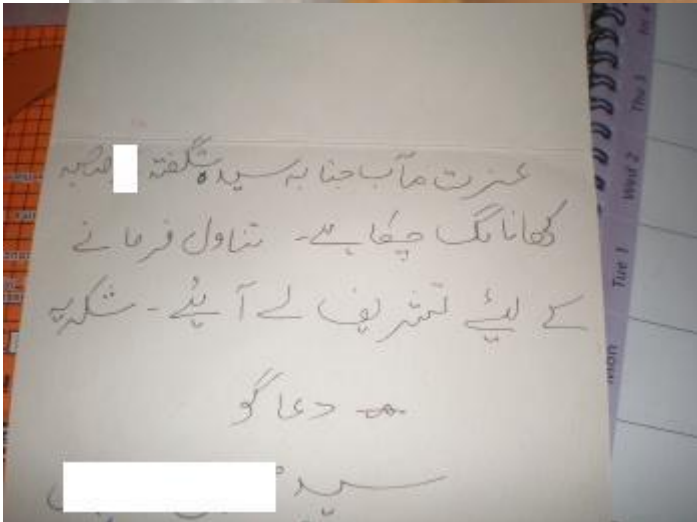 عزت مآب جنابہ سیدہ شگفتہ صاحبہ
کھانا لگ چکا ہے۔ تناول فرمانے
کے لیئے تشریف لے آیئے۔ شکریہ
دعا گو
سید
Mon
Tue 1
Wed 2
Thu 3